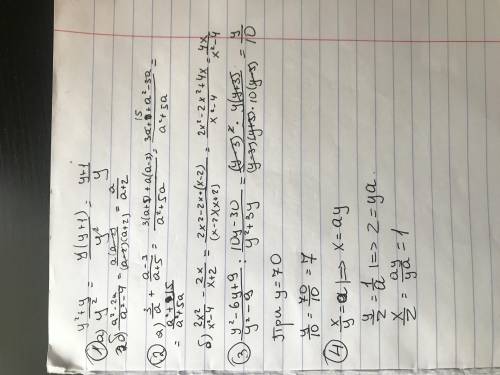 ① а) (y²+y)/y² = y(y+1)/y² = (y+1)/y
б) (a²-2a)/(a²-4) = a(a-2)/((a-2)(a+2)) = a/(a+2)
② а) 3/a + (a-3)/(a+5) = (3(a+5)+a(a-3))/(a²+5a) = (3a+15+a²-3a)/(a²+5a) =
= (a²+15)/(a²+5a)
б) 2x²/(x²-4) - 2x/(x+2) = (2x²-2x·(x-2))/((x-2)(x+2)) = (2x²-2x²+4x)/(x²-4) = 4x/(x²-4)
③ (y²-6y+9)/(y²-9) : (10y-30)/(y²+3y) = (y-3)²·y(y+3)/((y-3)(y+3)·10(y-3)) = y/10
При y=70
y/10 = 70/10 = 7
④ x/y = a |=> x=ay
y/z = 1/a |=> z=ya.
x/z = ay/ya = 1